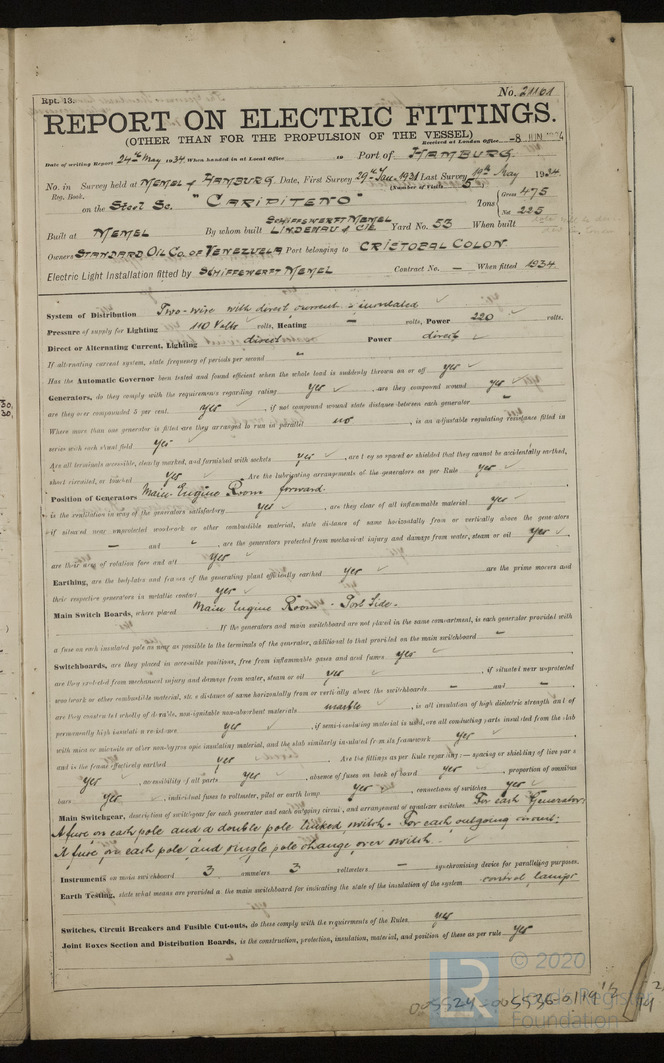 Rpt. 13.
No. 21161
REPORT ON ELECTRIC FITTINGS.
(OTHER THAN FOR THE PROPULSION OF THE VESSEL)
Received at London Office -8 JUN 1934
Date of writing Report 24th May 1934 When handed in at Local Office 19 Port of HAMBURG
No. in Survey held at MEMEL & HAMBURG Date, First Survey 29th Jan. 1931 Last Survey 14th May 1934
Reg. Book. (Number of Visits 5
on the Steel Sc. "CARIPITENO" Tons Gross 475
Net 225
Built at MEMEL By whom built SCHIFFSWERFT MEMEL LINDENAU & CIE Yard No. 53 When built
Owners STANDARD OIL CO. OF VENEZUELA Port belonging to CRISTOBAL COLON
Electric Light Installation fitted by SCHIFFSWERFT MEMEL Contract No. — When fitted 1934
System of Distribution Two-wire with direct current & insulated
Pressure of supply for Lighting 110 Volts volts, Heating — volts, Power 220 volts.
Direct or Alternating Current, Lighting direct Power direct
If alternating current system, state frequency of periods per second —
Has the Automatic Governor been tested and found efficient when the whole load is suddenly thrown on or off yes
Generators, do they comply with the requirements regarding rating yes , are they compound wound yes
are they over compounded 5 per cent. yes , if not compound wound state distance between each generator —
Where more than one generator is fitted are they arranged to run in parallel no , is an adjustable regulating resistance fitted in
series with each shunt field yes
Are all terminals accessible, clearly marked, and furnished with sockets yes , are they so spaced or shielded that they cannot be accidentally earthed,
short circuited, or touched yes Are the lubricating arrangements of the generators as per Rule yes
Position of Generators Main Engine Room forward.
is the ventilation in way of the generators satisfactory yes , are they clear of all inflammable material yes
if situated near unprotected woodwork or other combustible material, state distance of same horizontally from or vertically above the generators
— and — , are the generators protected from mechanical injury and damage from water, steam or oil yes
are their axes of rotation fore and aft yes
Earthing, are the bedplates and frames of the generating plant efficiently earthed yes are the prime movers and
their respective generators in metallic contact yes
Main Switch Boards, where placed Main Engine Room - Port Side.
If the generators and main switchboard are not placed in the same compartment, is each generator provided with
a fuse on each insulated pole as near as possible to the terminals of the generator, additional to that provided on the main switchboard —
Switchboards, are they placed in accessible positions, free from inflammable gases and acid fumes yes
are they protected from mechanical injury and damage from water, steam or oil yes , if situated near unprotected
woodwork or other combustible material, state distance of same horizontally from or vertically above the switchboards — and —
are they constructed wholly of durable, non-ignitable non-absorbent materials marble , is all insulation of high dielectric strength and of
permanently high insulation resistance yes , if semi-insulating material is used, are all conducting parts insulated from the slab
with mica or micanite or other non-hygroscopic insulating material, and the slab similarly insulated from its framework yes
and is the frame effectively earthed yes Are the fittings as per Rule regarding:— spacing or shielding of live parts
yes , accessibility of all parts yes , absence of fuses on back of board yes , proportion of omnibus
bars yes , individual fuses to voltmeter, pilot or earth lamp yes , connections of switches yes
Main Switchgear, description of switchgear for each generator and each outgoing circuit, and arrangement of equalizer switches For each Generator:
A fuse on each pole and a double pole linked switch. For each outgoing circuit:
A fuse on each pole and single pole change over switch.
Instruments on main switchboard 3 ammeters 3 voltmeters — synchronising device for paralleling purposes.
Earth Testing, state what means are provided at the main switchboard for indicating the state of the insulation of the system control lamps
Switches, Circuit Breakers and Fusible Cut-outs, do these comply with the requirements of the Rules yes
Joint Boxes Section and Distribution Boards, is the construction, protection, insulation, material, and position of these as per rule yes
LR
© 2020
Lloyd's Register
Foundation
005524-005536-0119 1/2